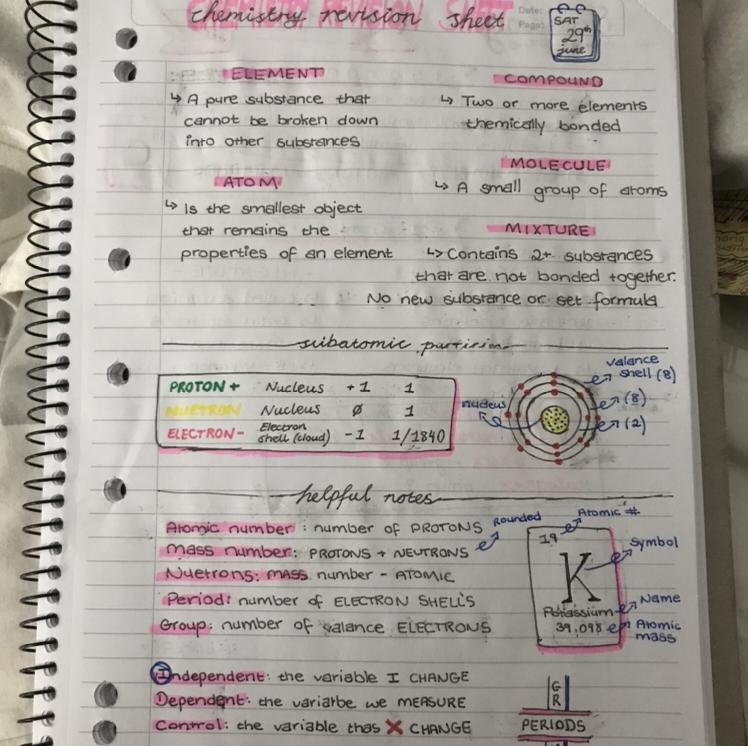 chemistry revision sheet
Date:
Page:
SAT
29th
june
ELEMENT
↳ A pure substance that
cannot be broken down
into other substances
COMPOUND
↳ Two or more elements
chemically bonded
MOLECULE
↳ A small group of atoms
ATOM
↳ Is the smallest object
that remains the
properties of an element
MIXTURE
↳ Contains 2+ substances
that are not bonded together.
No new substance or set formula
subatomic
PROTON + Nucleus +1 1
NUETRON Nucleus ø 1
ELECTRON - Electron shell (cloud) -1 1/1840
nucleus
valance
shell (8)
(8)
(2)
helpful notes
Atomic number : number of PROTONS
Mass number: PROTONS + NEUTRONS
Nuetrons: MASS number - ATOMIC
Period: number of ELECTRON SHELL'S
Group: number of valance ELECTRONS
Rounded
Atomic #
19
K
Potassium
39.098
Symbol
Name
Atomic
mass
Independent: the variable I CHANGE
Dependent: the variarbe we MEASURE
Control: the variable thas X CHANGE
G
R
PERIODS